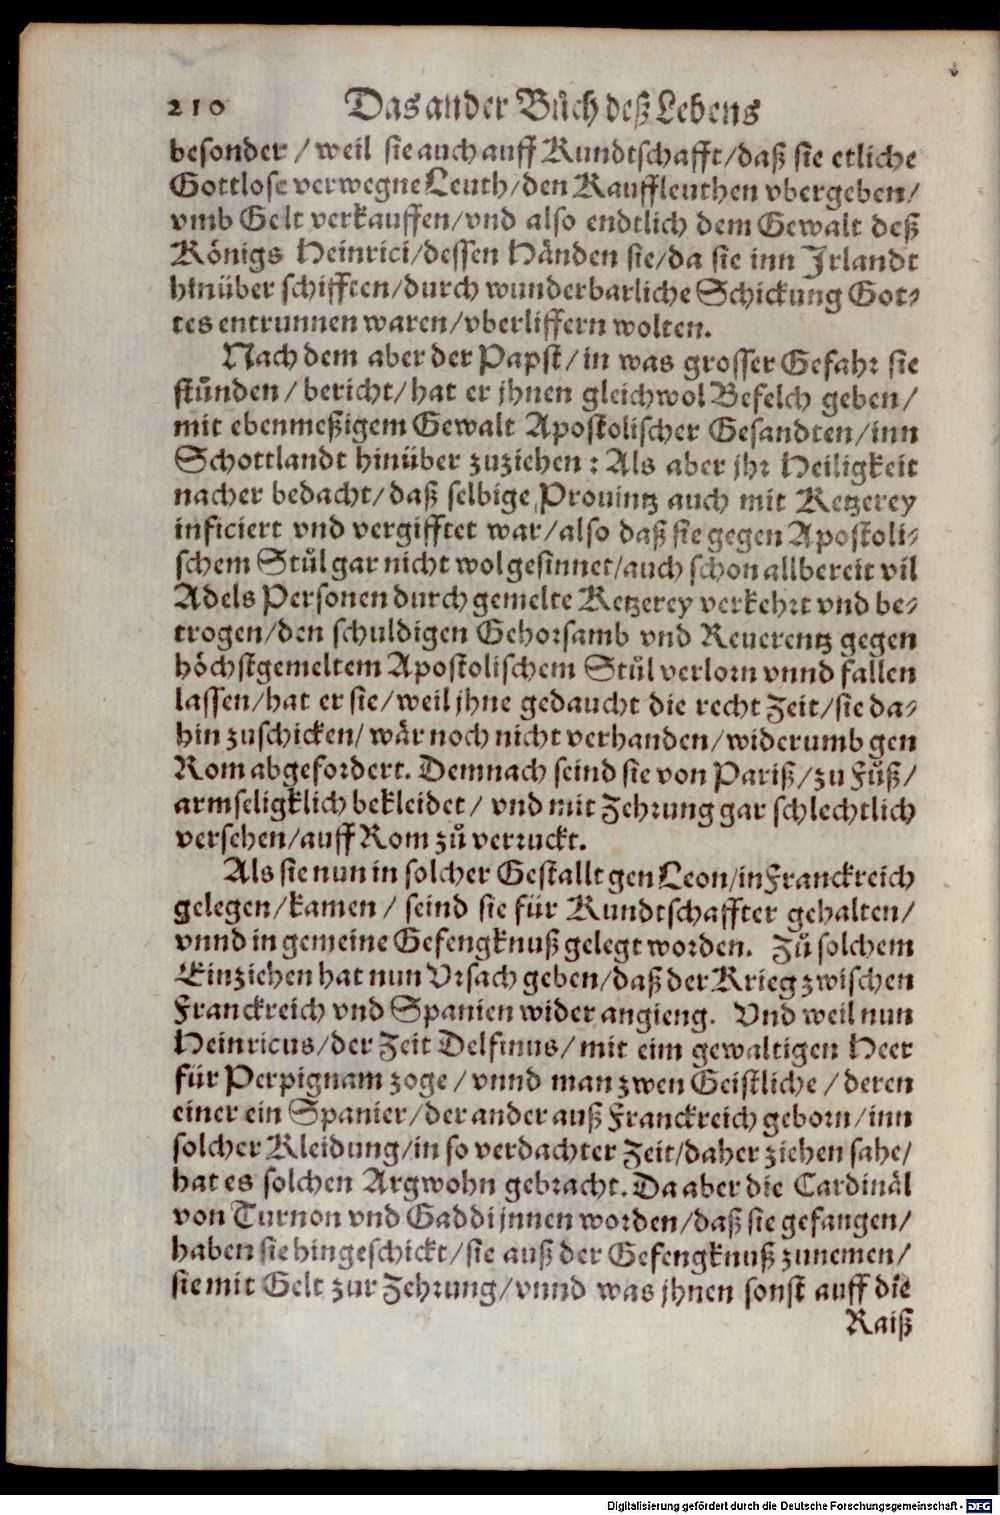 210 Das ander Bůch deß Lebens
besonder / weil sie auch auff Kundtschafft/daß sie etliche
Gottlose verwegne Leuth/den Kauffleuthen vbergeben/
vmb Gelt verkauffen/vnd also endtlich dem Gewalt deß
Königs Heinrici/dessen Händen sie/da sie inn Jrlandt
hinüber schifften/durch wunderbarliche Schickung Got-
tes entrunnen waren/vberliffern wolten.
Nach dem aber der Papst/in was grosser Gefahr sie
stůnden/ bericht/hat er jhnen gleichwol Befelch geben/
mit ebenmeßigem Gewalt Apostolischer Gesandten/inn
Schottlandt hinüber zuziehen: Als aber jhr Heiligkeit
nacher bedacht/daß selbige Prouintz auch mit Ketzerey
inficiert vnd vergifftet war/also daß sie gegen Apostoli-
schem Stůl gar nicht wol gesinnet/auch schon allbereit vil
Adels Personen durch gemelte Ketzerey verkehrt vnd be-
trogen/den schuldigen Gehorsamb vnd Reuerentz gegen
höchstgemeltem Apostolischem Stůl verlorn vnnd fallen
lassen/hat er sie/weil jhne gedaucht die recht Zeit/sie da-
hin zuschicken/wär noch nicht verhanden/widerumb gen
Rom abgefordert. Demnach seind sie von Pariß/zu Fůß/
armseligklich bekleidet/ vnd mit Zehrung gar schlechtlich
versehen/auff Rom zů verruckt.
Als sie nun in solcher Gestallt gen Leon/in Franckreich
gelegen/kamen/ seind sie für Kundtschaffter gehalten/
vnnd in gemeine Gefengknuß gelegt worden. Zů solchem
Einziehen hat nun Vrsach geben/daß der Krieg zwischen
Franckreich vnd Spanien wider angieng. Vnd weil nun
Heinricus/der Zeit Delfinus/mit eim gewaltigen Heer
für Perpignam zoge/vnnd man zwen Geistliche/deren
einer ein Spanier/der ander auß Franckreich geborn/inn
solcher Kleidung/in so verdachter Zeit/daher ziehen sahe/
hat es solchen Argwohn gebracht. Da aber die Cardinäl
von Turnon vnd Gaddi jnnen worden/daß sie gefangen/
haben sie hingeschickt/sie auß der Gefengknuß zunemen/
sie mit Gelt zur Zehrung/vnnd was jhnen sonst auff die
Raiß
Digitalisierung gefördert durch die Deutsche Forschungsgemeinschaft - DFG